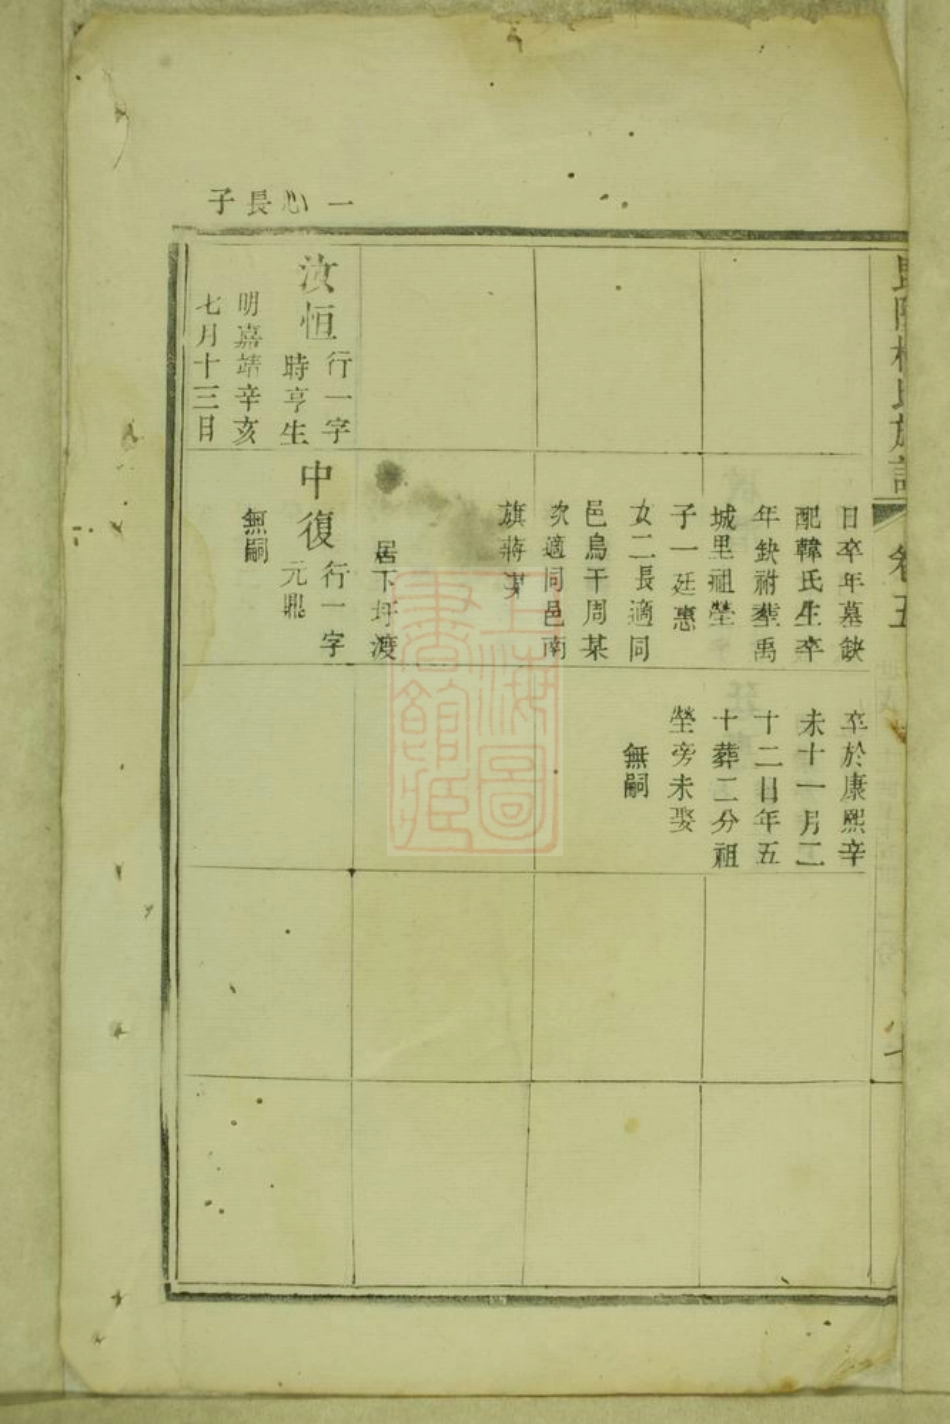 卷五
日卒年墓缺
配韓氏生卒
年缺祔塟禹
城里祖塋
子一廷惠
女二長適同
邑烏干周某
次適同邑南
旗蔣某
居下坪渡
卒於康熙辛
未十一月二
十二日年五
十葬二分祖
塋旁未娶
無嗣
一心長子
汝恒
行一字
時亨生
明嘉靖辛亥
七月十三日
中復
行一字
元鼎
無嗣
上海圖
書館藏